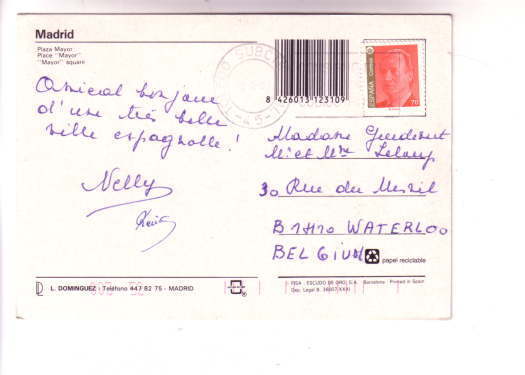 Madrid
Plaza Mayor
Place "Mayor"
"Mayor" square
Amical bonjour
d'une très belle
ville espagnole !
Nelly
8 426013 123109
ESPAÑA
70
Madame
M. et Mme Leloup
30 Rue du Mesnil
B1410 WATERLOO
BELGIUM
papel reciclable
L. DOMINGUEZ - Teléfono 447 82 75 - MADRID
FISA - ESCUDO DE ORO, S.A. Barcelona - Printed in Spain
Dep. Legal B. XXXI